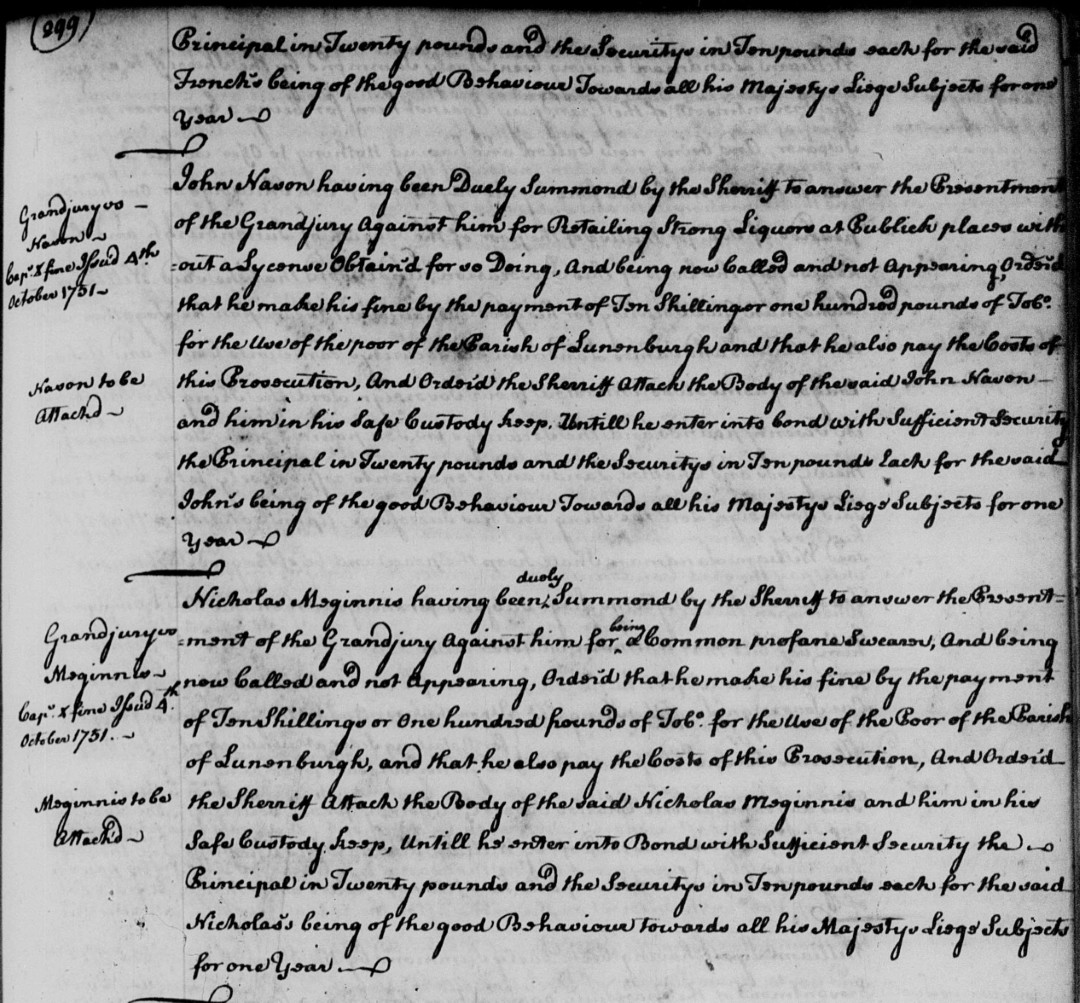 (299)
Principal in Twenty pounds and the Securitys in Ten pounds each for the said
French's being of the good Behaviour Towards all his Majestys Liege Subjects for one
Year
John Nason having been Duely Summond by the Sherriff to answer the Presentment
Grandjury vs
Nason
Cap. & fine Issud 4th
October 1751
of the Grandjury Against him for Retailing Strong Liquors at Publick places with
=out a Lycense Obtain'd for so Doing, And being now Called and not Appearing, Order'd
that he make his fine by the payment of Ten Shilling or one hundred pounds of Tobo.
for the Use of the poor of the Parish of Lunenburgh and that he also pay the Costs of
Nason to be
Attachd
this Prosecution, And Order'd the Sherriff Attach the Body of the said John Nason
and him in his Safe Custody keep. Untill he enter into bond with Sufficient Security
the Principal in Twenty pounds and the Securitys in Ten pounds Each for the said
John's being of the good Behaviour Towards all his Majestys Liege Subjects for one
Year
Nicholas Meginnis having been duely Summond by the Sherriff to answer the Present=
Grandjury vs
Meginnis
Cap. & fine Issud 4th.
October 1751.
=ment of the Grandjury Against him for being a Common profane Swearer, And being
now Called and not Appearing, Order'd that he make his fine by the payment
of Ten Shillings or One hundred pounds of Tobo. for the Use of the Poor of the Parish
of Lunenburgh, and that he also pay the Costs of this Prosecution, And Order'd
Meginnis to be
Attach'd
the Sherriff Attach the Body of the said Nicholas Meginnis and him in his
Safe Custody keep, Untill he enter into Bond with Sufficient Security the
Principal in Twenty pounds and the Securitys in Ten pounds each for the said
Nicholas's being of the good Behaviour towards all his Majestys Liege Subjects
for one Year